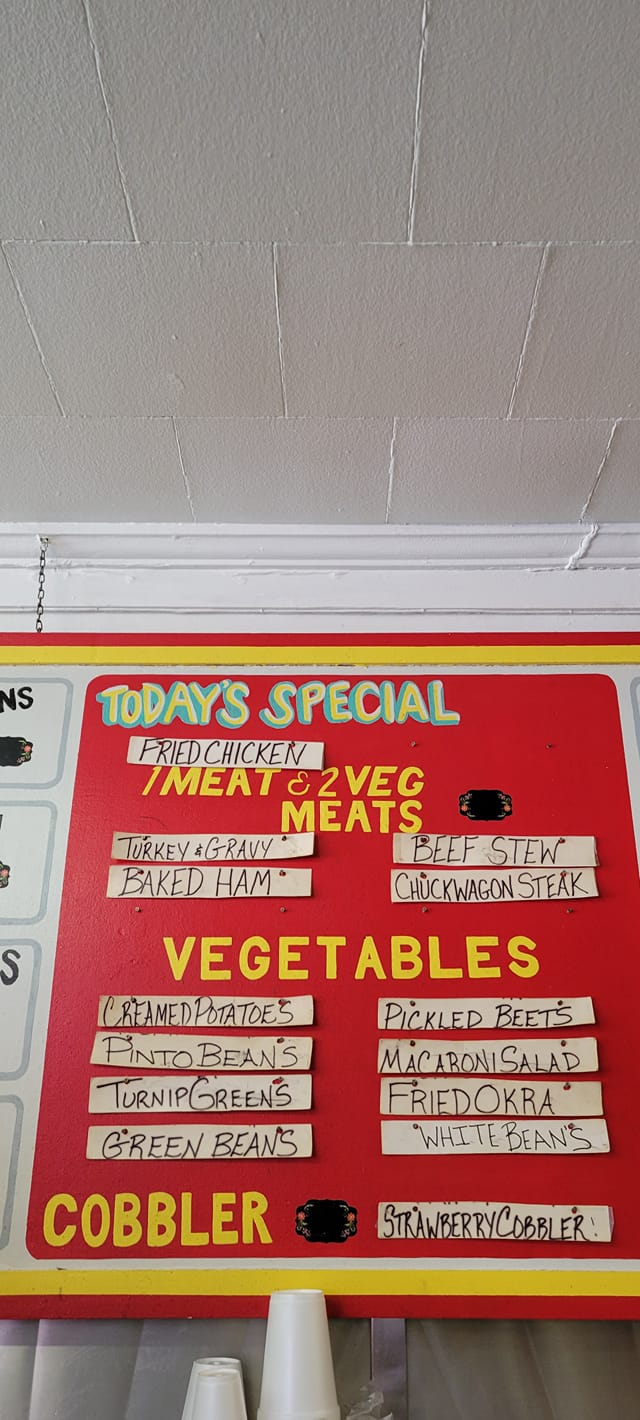 NS
TODAY'S SPECIAL
FRIED CHICKEN
1 MEAT & 2 VEG
MEATS
TURKEY & GRAVY
BEEF STEW
BAKED HAM
CHUCKWAGON STEAK
S
VEGETABLES
CREAMED POTATOES
PICKLED BEETS
PINTO BEANS
MACARONI SALAD
TURNIP GREENS
FRIED OKRA
GREEN BEANS
WHITE BEAN'S
COBBLER
STRAWBERRY COBBLER!